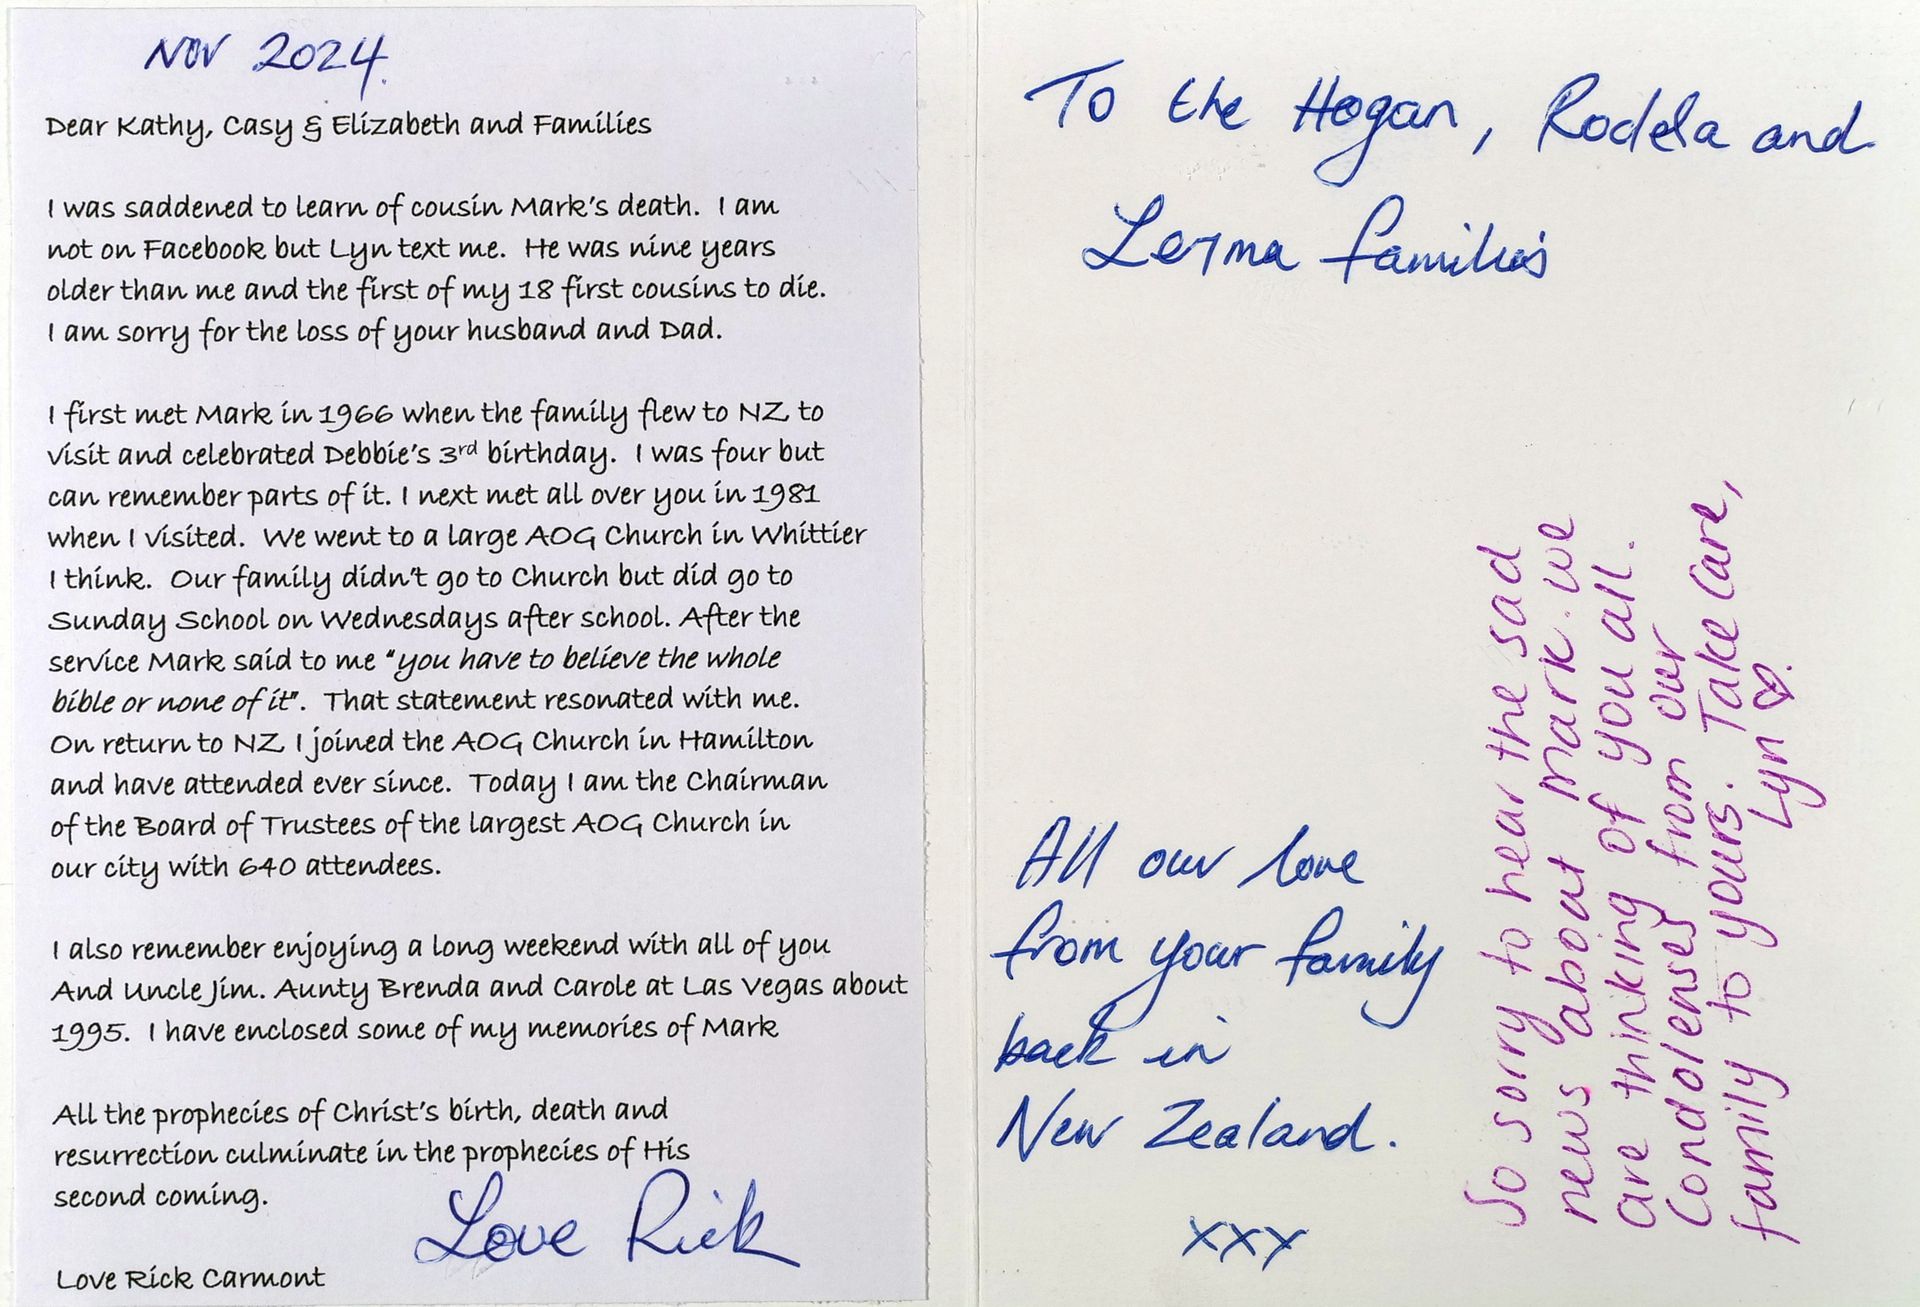 Nov 2024.
Dear Kathy, Casy & Elizabeth and Families
I was saddened to learn of cousin Mark's death. I am
not on Facebook but Lyn text me. He was nine years
older than me and the first of my 18 first cousins to die.
I am sorry for the loss of your husband and Dad.
I first met Mark in 1966 when the family flew to NZ to
visit and celebrated Debbie's 3rd birthday. I was four but
can remember parts of it. I next met all over you in 1981
when I visited. We went to a large AOG Church in Whittier
I think. Our family didn't go to Church but did go to
Sunday School on Wednesdays after school. After the
service Mark said to me "you have to believe the whole
bible or none of it". That statement resonated with me.
On return to NZ I joined the AOG Church in Hamilton
and have attended ever since. Today I am the Chairman
of the Board of Trustees of the largest AOG Church in
our city with 640 attendees.
I also remember enjoying a long weekend with all of you
And Uncle Jim. Aunty Brenda and Carole at Las Vegas about
1995. I have enclosed some of my memories of Mark
All the prophecies of Christ's birth, death and
resurrection culminate in the prophecies of His
second coming.
Love Rick
Love Rick Carmont
To the Hogan, Rodela and
Lerma families
All our love
from your family
back in
New Zealand.
xxx
So sorry to hear the sad
news about mark. we
are thinking of you all.
Condolenses from our
family to yours. Take Care,
Lyn ♡.